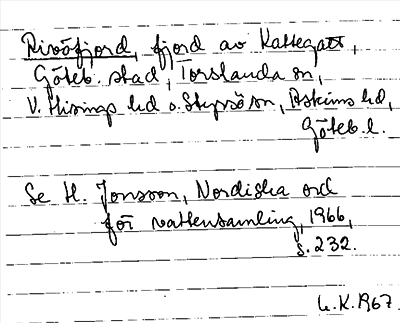 Rivöfjord, fjord av Kattegatt,
Göteb. stad, Torslanda sn,
V. Hisings hd o. Styrsö sn, Askims hd,
Göteb. l.
Se H. Jonsson, Nordiska ord
för vattensamling, 1966,
s. 232.
U.K. 1967